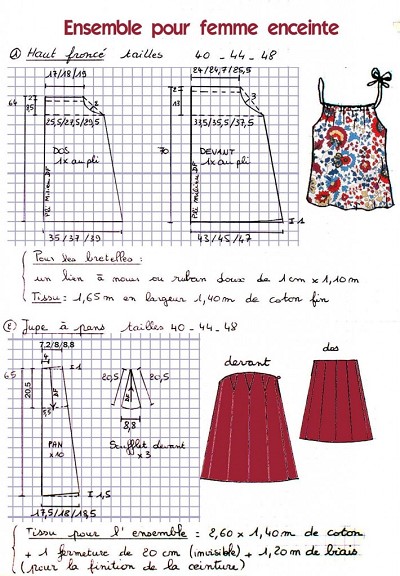 Ensemble pour femme enceinte
① Haut froncé tailles 40 - 44 - 48
17/18/19
24/24,7/25,5
64
2
35
25,5/27,5/29,5
2
13
3
33,5/35,5/37,5
DOS
1x au pli
Pli milieu DF
70
DEVANT
1x au pli
Pli milieu DF
35/37/39
43/45/47
1
Pour les bretelles :
un lien à nouer ou ruban doux de 1 cm x 1,10 m
Tissu : 1,65 m en largeur 1,40 m de coton fin
② Jupe à pans tailles 40 - 44 - 48
7,2/8/8,8
4
1
65
20,5
DF
3,5
PAN
x 10
1,5
17,5/18/18,5
20,5
20,5
DF
8,8
Soufflet devant
x 3
devant
dos
Tissu pour l'ensemble = 2,60 x 1,40 m de coton
+ 1 fermeture de 20 cm (invisible) + 1,20 m de biais
(pour la finition de la ceinture)